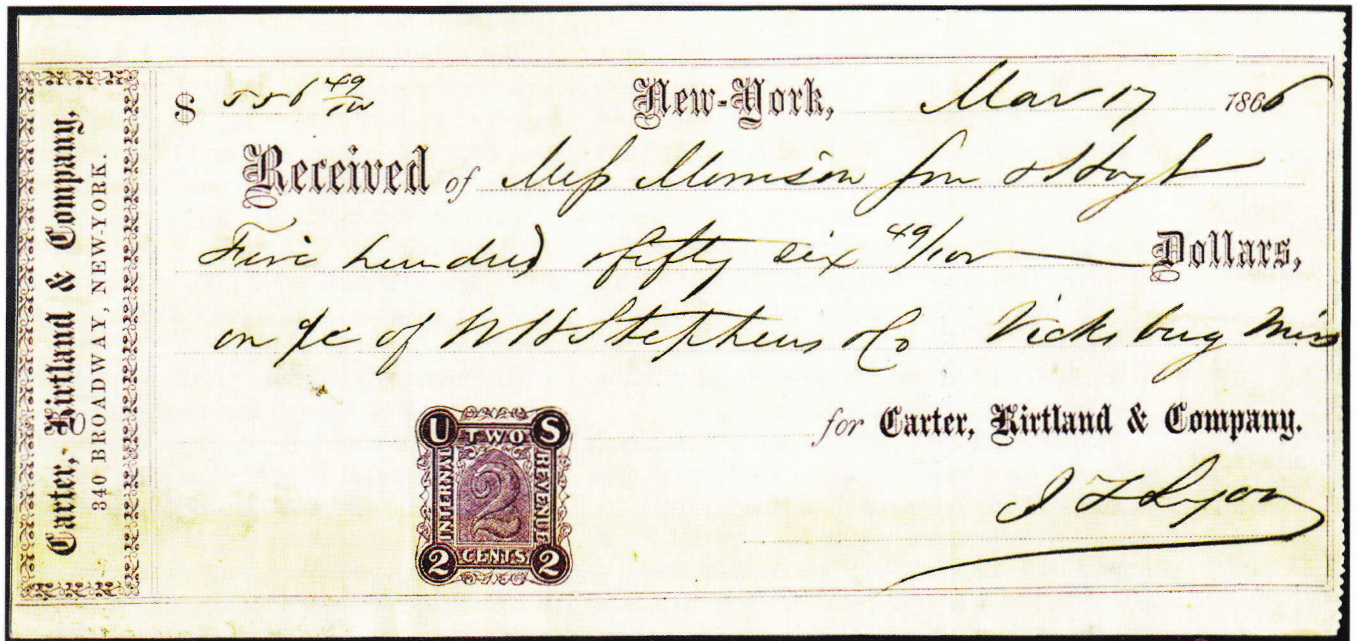 Carter, Kirtland & Company,
340 BROADWAY, NEW-YORK.
$ 556 49/100 New-York, Mar 17 1866
Received of Mess Morrison & Hoyt
Five hundred & fifty six 49/100 Dollars,
on a/c of W H Stephens & Co Vicksburg Miss
for Carter, Kirtland & Company.
J L Lyon
U TWO S
INTERNAL 2 REVENUE
2 CENTS 2